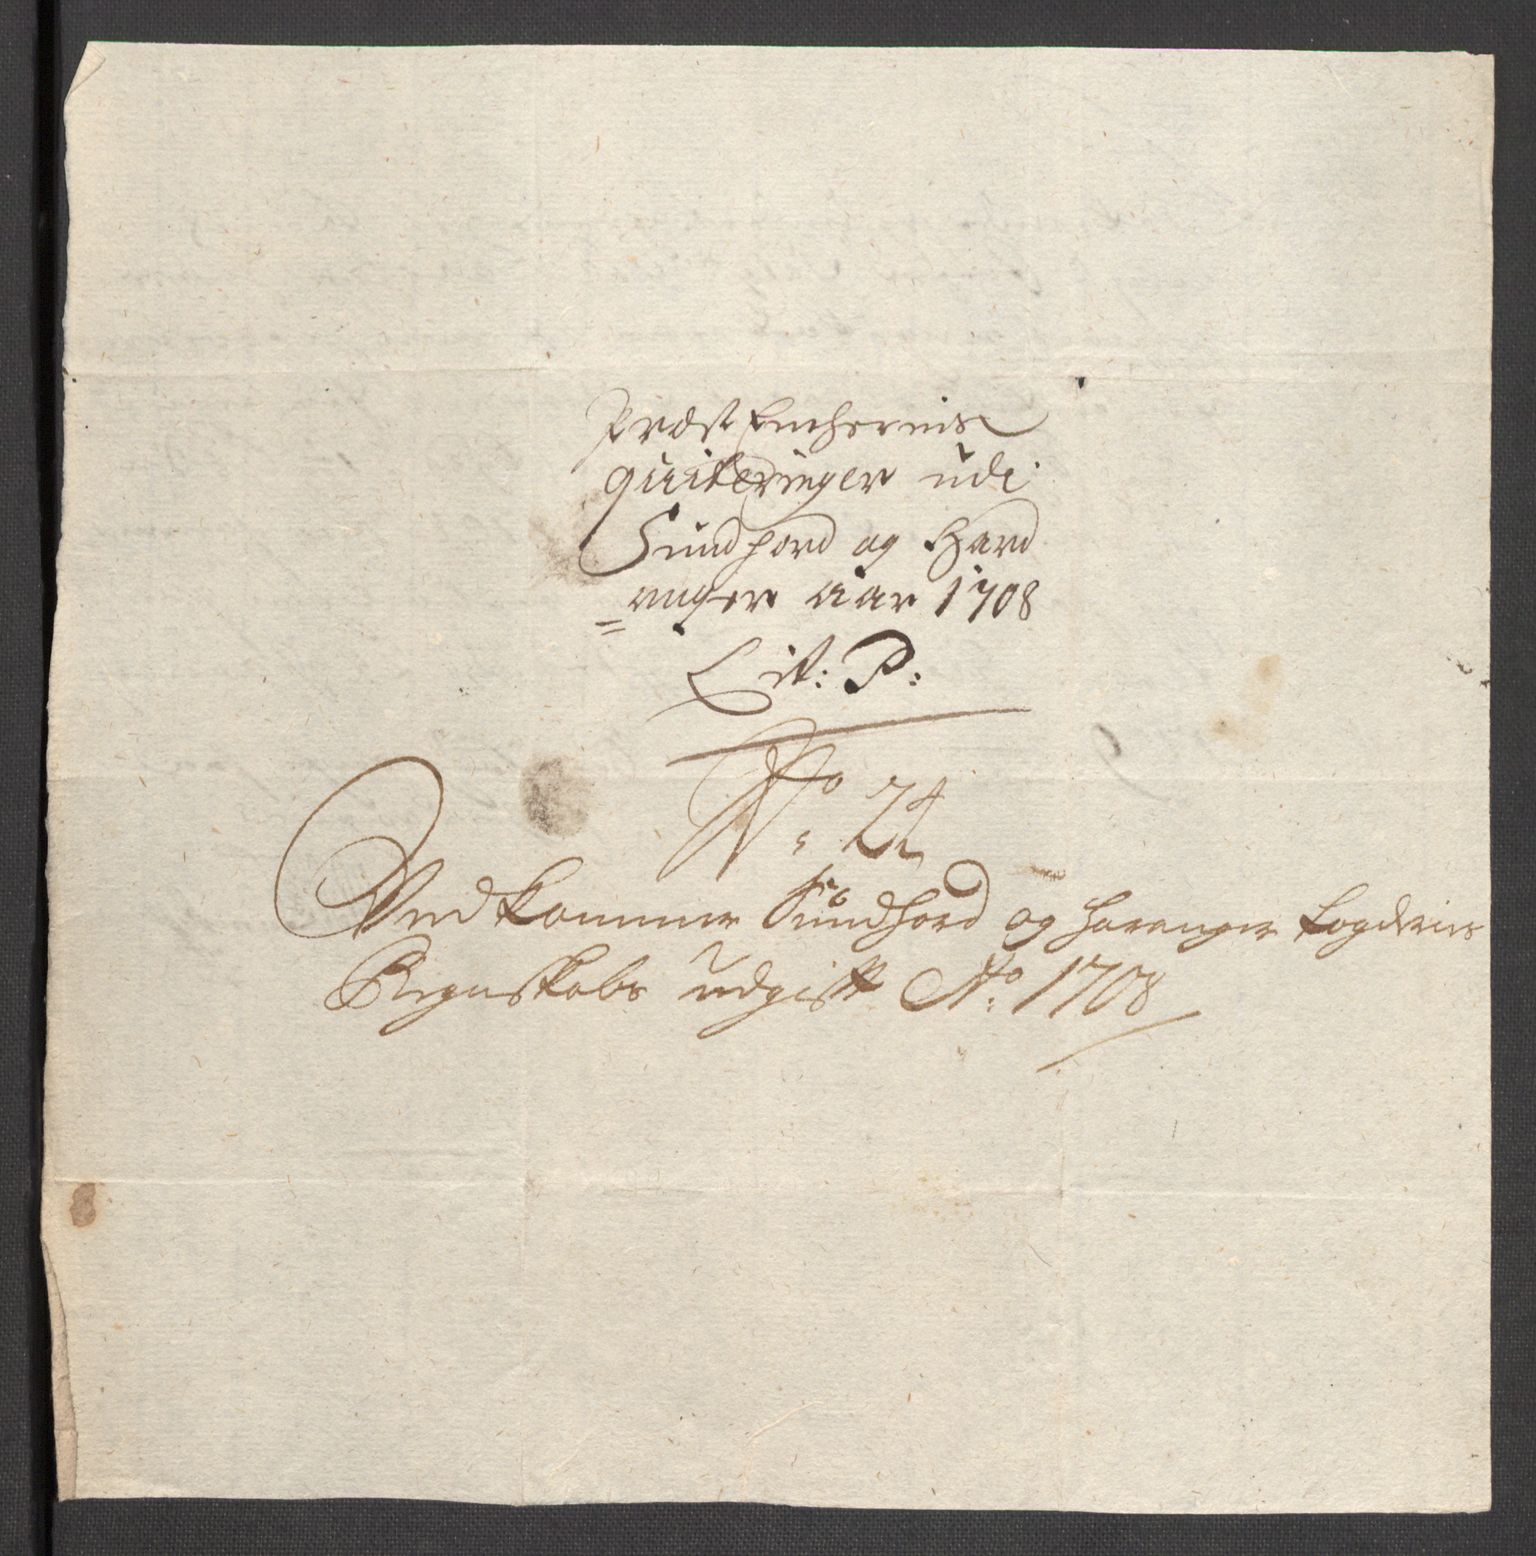 Præst Enchernis
quiteringer udi
Sundhord og Hard
= anger aar 1708
Lit: P:
No: 24
Vedkommer Sundhord og Haranger fogderies
Regnskabs udgift Ao: 1708